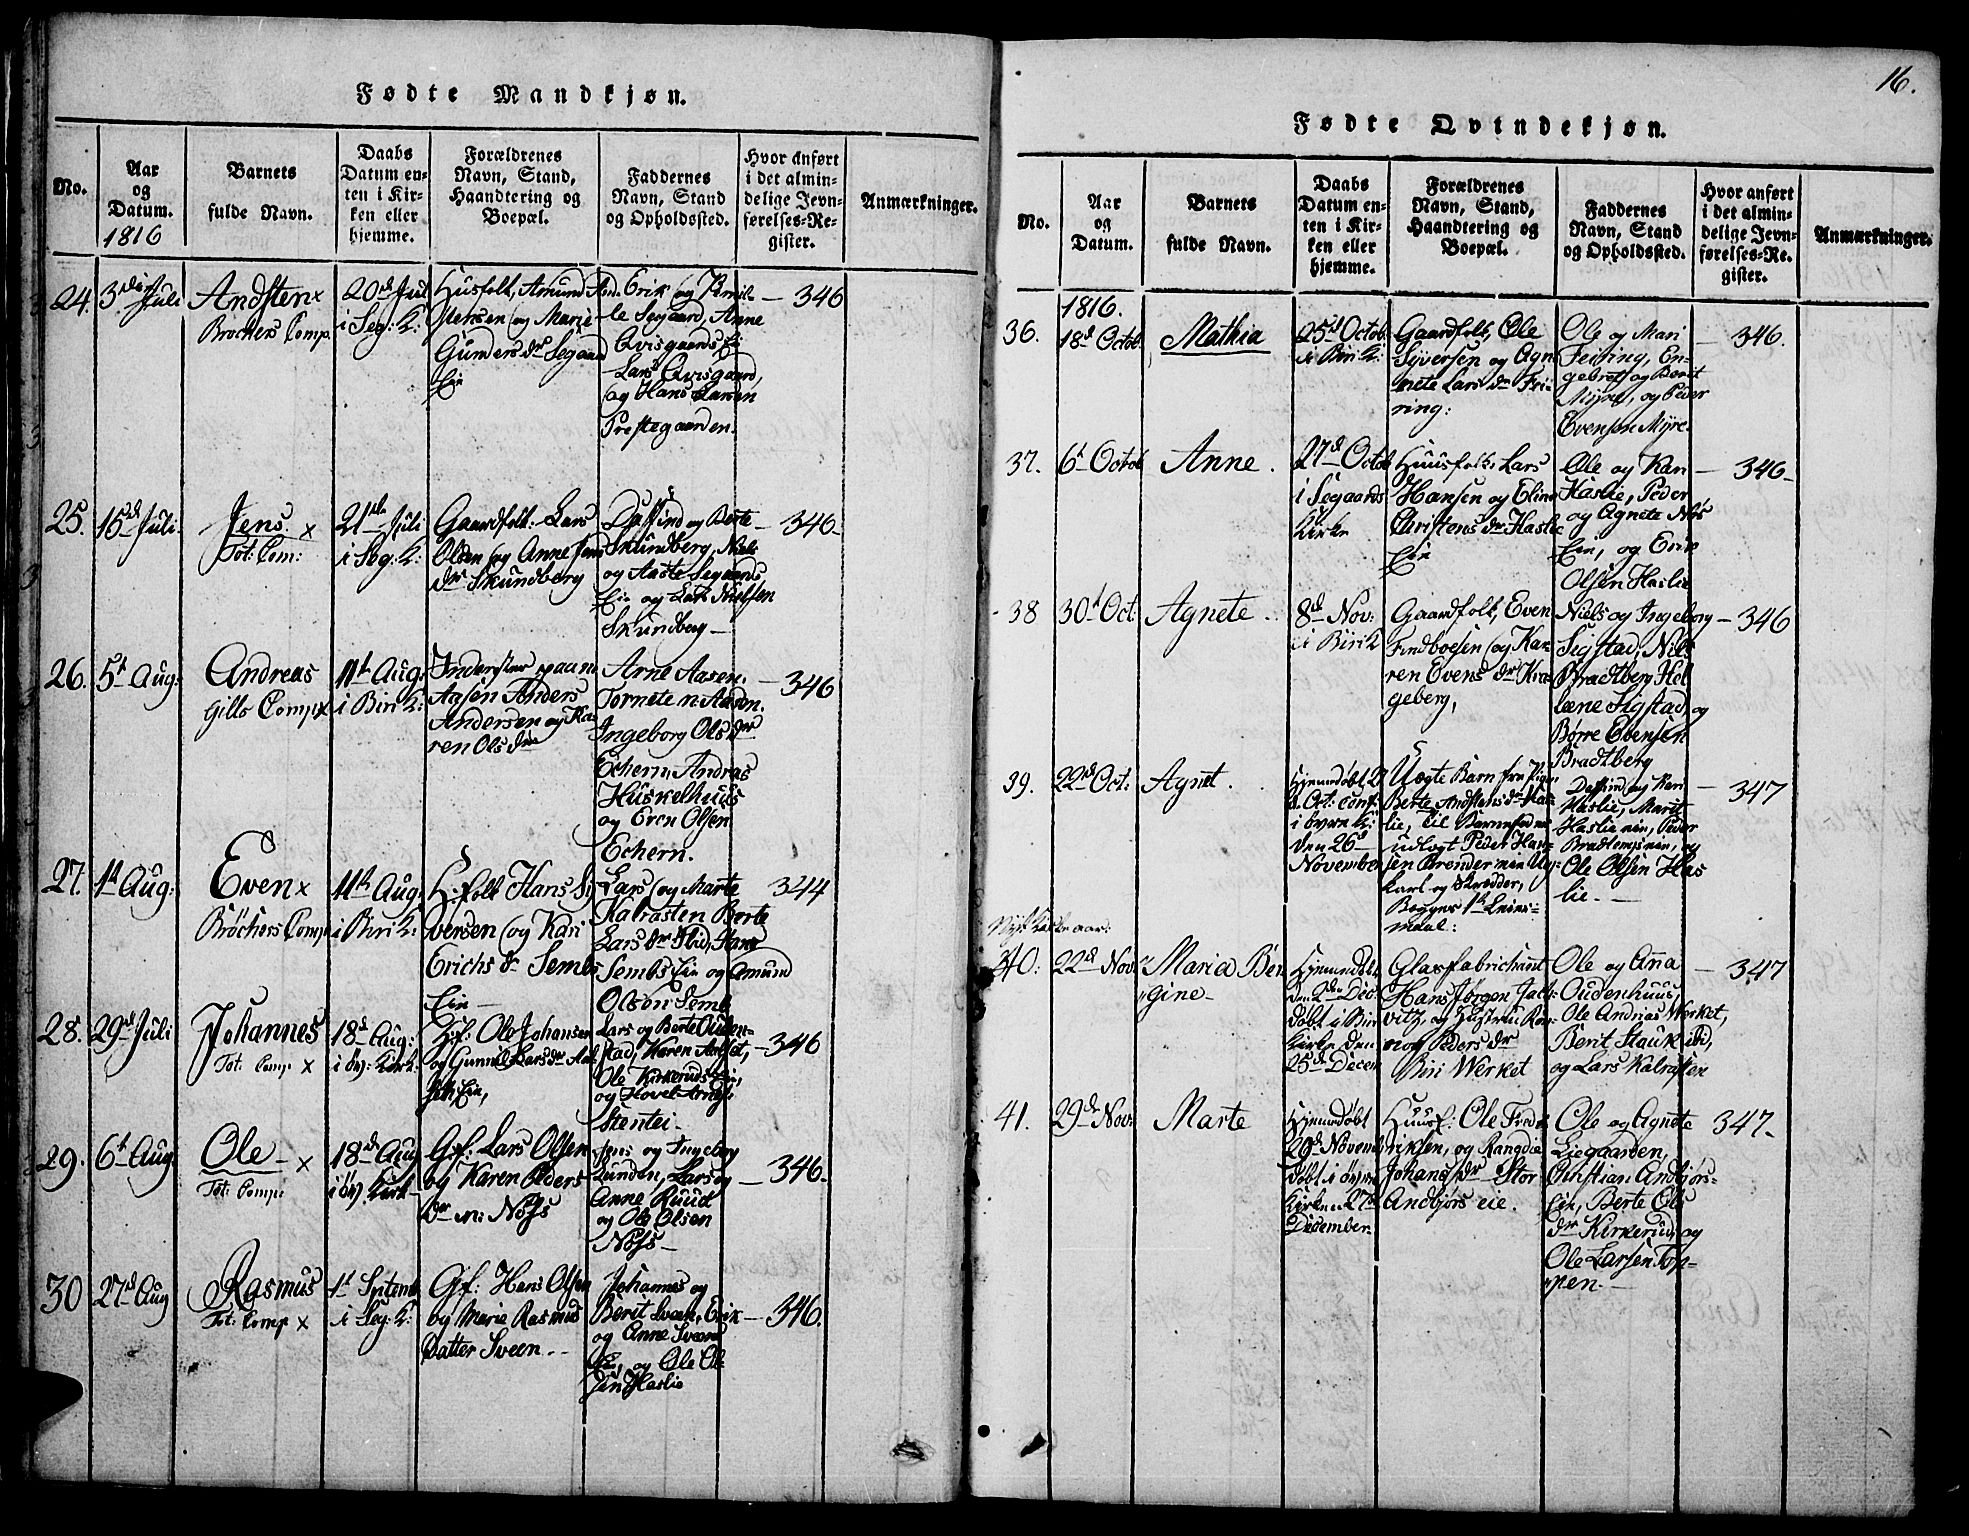 Fødte Mandkjøn.
No.
Aar
og
Datum.
1816
Barnets
fulde Navn.
Daabs
Datum en-
ten i Kir-
ken eller
hjemme.
Forældrenes
Navn, Stand,
Haandtering og
Boepæl.
Faddernes
Navn, Stand
og Opholdssted.
Hvor anført
i det almin-
delige Jevn-
førelses-Re-
gister.
Anmærkninger.
24.
3die Juli
Andsten x
Bröchers Comp.
20de Juli
i Seg: K:
Husfolk, Amund And-
stensen og Marie
Gunders dr Segaard
Eie
Erik og Pernil-
le Segaard, Anne
Qvisgaards Eie
Lars Qvisgaard,
og Hans Larsen
Prestegaarden.
346
25.
15de Juli
Jens x
Tot: Com:
21de Juli
i Seg: K:
Gaardfolk: Lars
Olsen og Anne Jens
dr Skundberg
Daffind og Berte
Skundberg, Niels
og Aaste Segaards
Eie og Lars
Skundberg
346
26.
5t Aug:
Andreas
Gills Comp x
11te Aug:
i Biri K:
Inderster paa n:
Aasen Anders
Andersen og Ka-
ren Ols dtr
Arne Aasen,
Tornete n: Aasen.
Ingeborg Ols dtr
Echern, Andras
Huskelhuus
og Even Olsen
Echern.
346
27.
1t Aug:
Even x
Bröchers Comp
11te Aug:
i Biri K:
H: folk Hans Si-
versen og Kari
Erichs dr Sembs
Eie
Lars og Marte
Kalrasten Berte
Lars dr Hans
Sembs Eie og Amund
Olsen Semb
344
28.
29de Juli
Johannes
Tot: Comp x
18de Aug:
i öv: Kirk:
Hf: Ole Johansen
og Gunnild Lars dr Aal-
seth Eie,
Lars og Berte Ouden-
stad, Karen
Ole Kirkeruds Eie,
og Hovel
Stentei.
346
29.
6t Aug
Ole x
Tot: Comp:
18de Aug
i öv: Kirk
Gf: Lars Olsen
og Karen Peders
dr n: Nöss
Jens og Ingeborg
Lunden, Lars og
Anne Ruud
og Ole Olsen
Nöss
346.
30
27de Aug
Rasmus
Tot: Comp x
1t Septemb
i Seg: K:
Gf: Hans Olsen
og Marie Rasmus
Datter Sveen.
Johannes og
Berit Sveen, Erik
og Anne Sveens
Eie, og Ole Ol-
sen Haslie
346.
16.
Fødte Qvindekjøn.
No.
Aar
og
Datum.
Barnets
fulde Navn.
Daabs
Datum en-
ten i Kir-
ken eller
hjemme.
Forældrenes
Navn, Stand,
Haandtering og
Boepæl.
Faddernes
Navn, Stand
og Opholdssted.
Hvor anført
i det almin-
delige Jevn-
førelses-Re-
gister.
Anmærkninger.
36.
1816.
18de Octob:
Mathia
25de Octob
i Biri K:
Gaardfolk, Ole
Syversen og Ag-
nete Lars dr Fei-
ring:
Ole og Mari
Feiring, En-
gebret og Berit
Myre, og Peder
Evensen Myre
346.
37.
6t Octob
Anne.
27de Octob
i Segaards
Kirke
Huusfolk, Lars
Hansen og Eline
Christens dr Haslie
Eie
Ole og Kari
Haslie, Peder
og Agnete Nös
Eie, og Erik
Olsen Haslie
346
38
30t Oct:
Agnete
8de Nov:
i Biri K
Gaardfolk, Even
Findboesen og Ka-
ren Evens dr Kra-
geberg,
Niels og Ingeborg
Sigstad, Nils
Bradtberg Hel-
lene Sigstad, og
Börre Ebensen
Bradtberg
346
39.
22de Oct:
Agnet.
Hjemedöbt 27
de Oct: conf.
i övere K:
den 26de
November
Uegte Barn fra Pigen
Berte Andstens dr Has-
lie, til Barnefader
udlagt Peder Han-
sen Brender nie Ung-
karl og Skredder,
Begges 1te Leiers-
maal:
Daffind og Kari
Haslie, Marit
Haslie nie, Peder
og
Ole Olsen Has-
lie.
347
Nyt Kirke aar:
40.
22de Nov:
Maria Ber-
gine
Hjemmedöbt
den 2den Dec:
döbt i Biri
Kirke den
25de Decem
Glasfabrichant
Hans Jörgen Jaco-
vitz, og Hustrue Kar-
Peders dr
Biri Werket
Ole og Anna
Oudenhuus,
Ole Andrias Werket,
Berit
og Lars Kalrasten
347
41.
29de Nov:
Marte
Hjemedöbt
29de Novemb
döbt i övre
Kirke 27de
December
Huusf: Ole Fred-
riksen, og Rangdie
Johans dr Stor
Andbjörs eie.
Ole og Agnete
Liegaarden,
Christian Andbjörs-
Eie, Berte Ols
dr Kirkerud, og
Ole Larsen Top-
pen.
347.